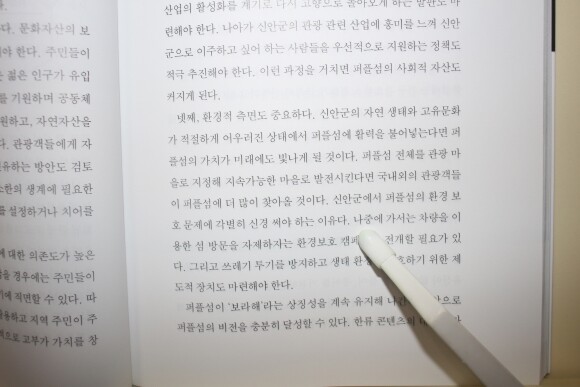 다. 문화자산의 보
야 한다. 주민들이
는 젊은 인구가 유입
를 기원하며 공동체
원하고, 자연자산을
다. 관광객들에게 자
유하는 방안도 검토
소한의 생계에 필요한
를 설정하거나 치어를
에 대한 의존도가 높은
을 경우에는 주민들이
기에 직면할 수 있다. 따
용하고 지역 주민이 주
으로 고부가 가치를 창
산업의 활성화를 계기로 다시 고향으로 돌아오게 하는 발판도 마
련해야 한다. 나아가 신안군의 관광 관련 산업에 흥미를 느껴 신안
군으로 이주하고 싶어 하는 사람들을 우선적으로 지원하는 정책도
적극 추진해야 한다. 이런 과정을 거치면 퍼플섬의 사회적 자산도
커지게 된다.
넷째, 환경적 측면도 중요하다. 신안군의 자연 생태와 고유문화
가 적절하게 어우러진 상태에서 퍼플섬에 활력을 불어넣는다면 퍼
플섬의 가치가 미래에도 빛나게 될 것이다. 퍼플섬 전체를 관광 마
을로 지정해 지속가능한 마을로 발전시킨다면 국내외의 관광객들
이 퍼플섬에 더 많이 찾아올 것이다. 신안군에서 퍼플섬의 환경 보
호 문제에 각별히 신경 써야 하는 이유다. 나중에 가서는 차량을 이
용한 섬 방문을 자제하자는 환경보호 전개할 필요가 있
다. 그리고 쓰레기 투기를 방지하고 생태 위한 제
도적 장치도 마련해야 한다.
퍼플섬이 '보라해'라는 상징성을 계속 유지해
퍼플섬의 비전을 충분히 달성할 수 있다. 한류